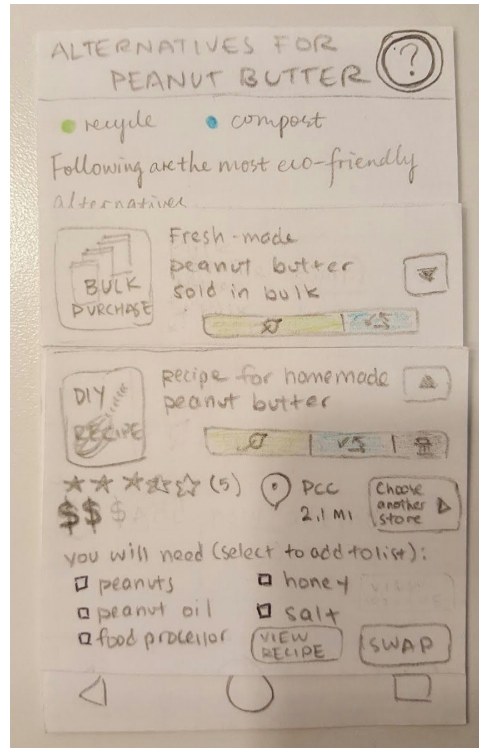 ALTERNATIVES FOR
PEANUT BUTTER
?
recycle compost
Following are the most eco-friendly
alternatives
BULK
PURCHASE
Fresh-made
peanut butter
sold in bulk
DIY
RECIPE
recipe for homemade
peanut butter
(5)
$$$
PCC
2.1 MI
Choose
another
store
you will need (select to add to list):
peanuts
peanut oil
food processor
honey
salt
VIEW
RECIPE
SWAP